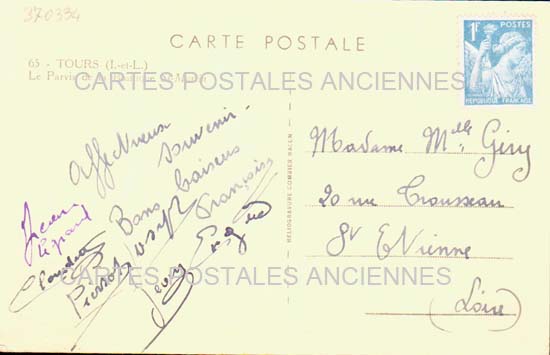 370334
CARTE POSTALE
65 - TOURS (I.-et-L.)
Le Parvis de la Basilique St-Martin
CARTES POSTALES ANCIENNES
1F POSTES
REPUBLIQUE FRANÇAISE
Affectueux
souvenir
Bons baisers
Françoise
Joseph
Claudia
Pierrot
HELIOGRAVURE COMBIER MACON
Madame Mlle Giry
20 rue Trousseau
St Etienne
(Loire)
CARTES POSTALES ANCIENNES